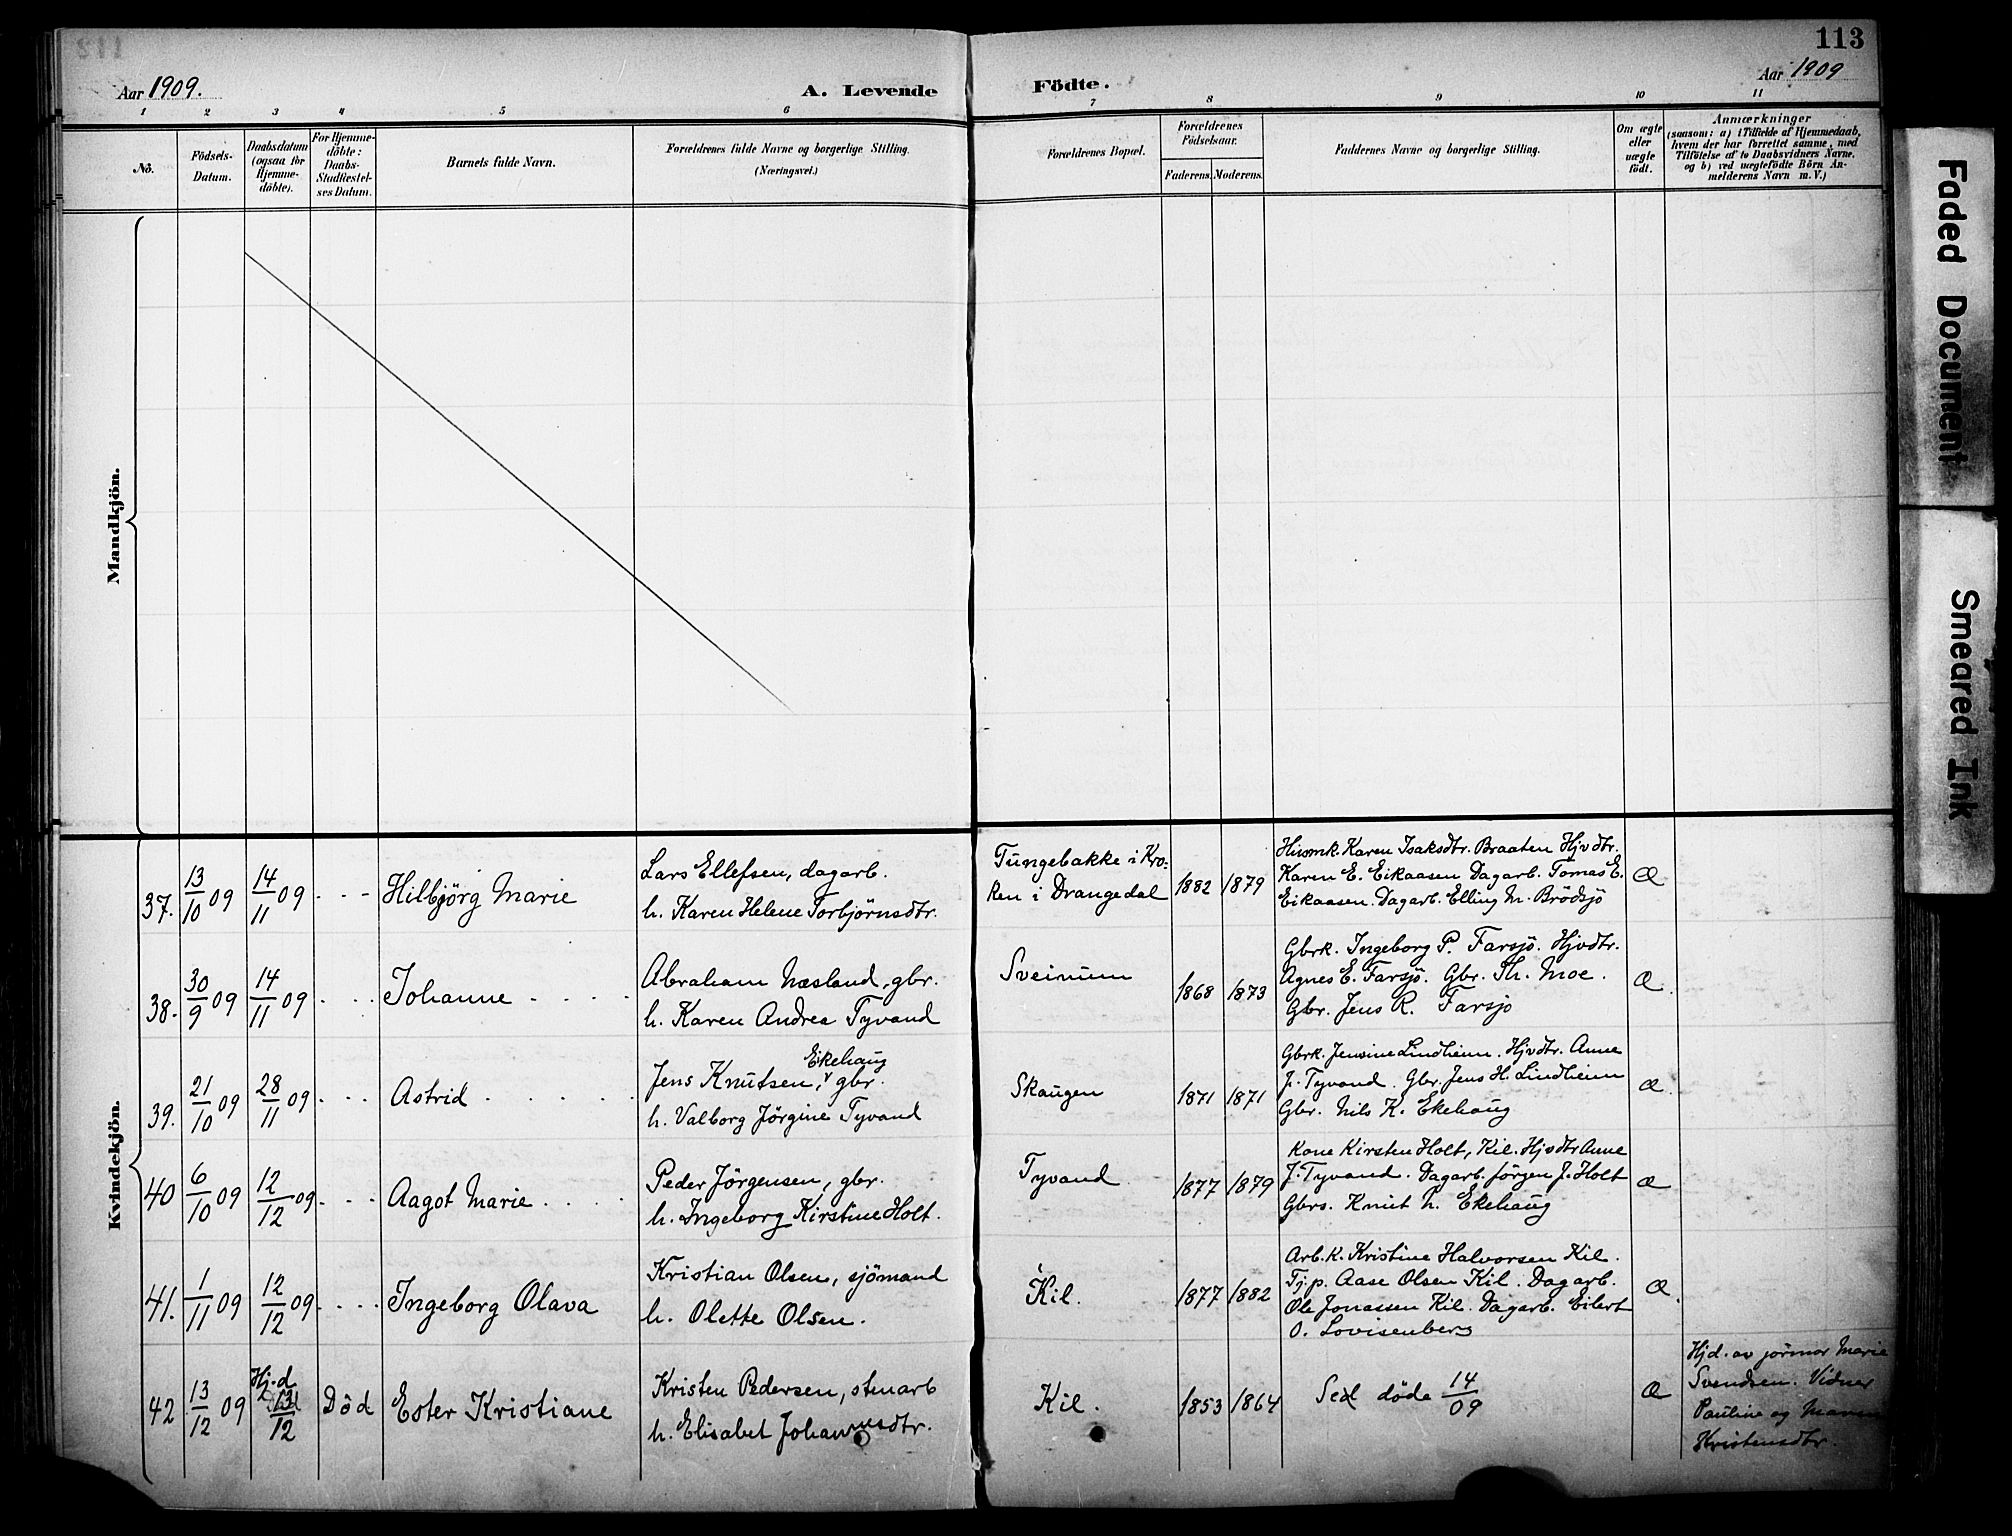 112
113
Aar 1909.
A. Levende
Födte.
Aar 1909
1 2 3 4 5 6 7 8 9 10 11
No.
Födsels-
Datum.
Daabsdatum
(ogsaa for
Hjemme-
döbte).
For Hjemme-
döbte:
Daabs-
Stadfæstel-
ses Datum.
Barnets fulde Navn.
Forældrenes fulde Navne og borgerlige Stilling.
(Næringsvei.)
Forældrenes Bopæl.
Forældrenes
Födselsaar.
Faderens. Moderens.
Faddernes Navne og borgerlige Stilling.
Om ægte
eller
uægte
födt.
Anmærkninger
(saasom: a) i Tilfælde af Hjemmedaab,
hvem der har forrettet samme, med
Tilföielse af to Daabsvidners Navne,
og b) ved uægtefödte Börn An-
melderens Navn m. V.)
Mandkjön.
Kvindekjön.
37. 13/10 09 14/11 09 - - - Hilbjörg Marie
Lars Ellefsen, dagarb.
h. Karen Helene Torbjørnsdtr.
Tungebakke i Kro-
ken i Drangedal
1882 1879
Husmk. Karen Isaksdtr. Braaten Hjvdtr.
Karen E. Eikaasen Dagarb. Tomas E.
Eikaasen. Dagarb. Elling M. Brödsjö
Æ
38. 30/9 09 14/11 09 - - - Johanne - - - -
Abraham Næsland, gbr.
h. Karen Andrea Tyvand
Sveinum
1868 1873
Gbrk. Ingeborg P. Farsjø. Hjvdtr.
Agnes E. Farsjö. Gbr. Th. Moe.
Gbr. Jens R. Farsjo
Æ.
39. 21/10 09 28/11 09 - - - Astrid - - - - -
Ekehaug
Jens Knutsen, gbr.
h. Valborg Jørgine Tyvand
Skaugen
1871 1871
Gbrk. Jensine Lindheim. Hjvdtr. Anne
J. Tyvand. Gbr. Jens H. Lindheim
Gbr. Nils K. Ekehaug
Æ.
40 6/10 09 12/12 09 - - - Aagot Marie - - -
Peder Jörgensen, gbr.
h. Ingeborg Kirstine Holt.
Tyvand
1877 1879
Kone Kirsten Holt, Kil. Hjvdtr Anne
J. Tyvand. Dagarb. Jörgen J. Holt
Gbrs. Knut N. Ekehaug
Æ
41. 1/11 09 12/12 09 - - - Ingeborg Olava
Kristian Olsen, sjömand
h. Olette Olsen.
Kil.
1877 1882
Arb.k. Kristine Halvorsen Kil.
Tjp. Aase Olsen Kil. Dagarb.
Ole Jonassen Kil. Dagarb. Eilert
O. Lovisenberg
Æ.
42 13/12 09 Hj.d 13/12 Död Ester Kristiane
Kristen Pedersen, stenarb
h. Elisabet Johannesdtr.
Kil.
1853 1864
döde 14/09
Æ
Hjd. av jormor Marie
Svendsen. Vidner
Pauline og Maren
Kristensdtr.
Faded Document
Smeared Ink